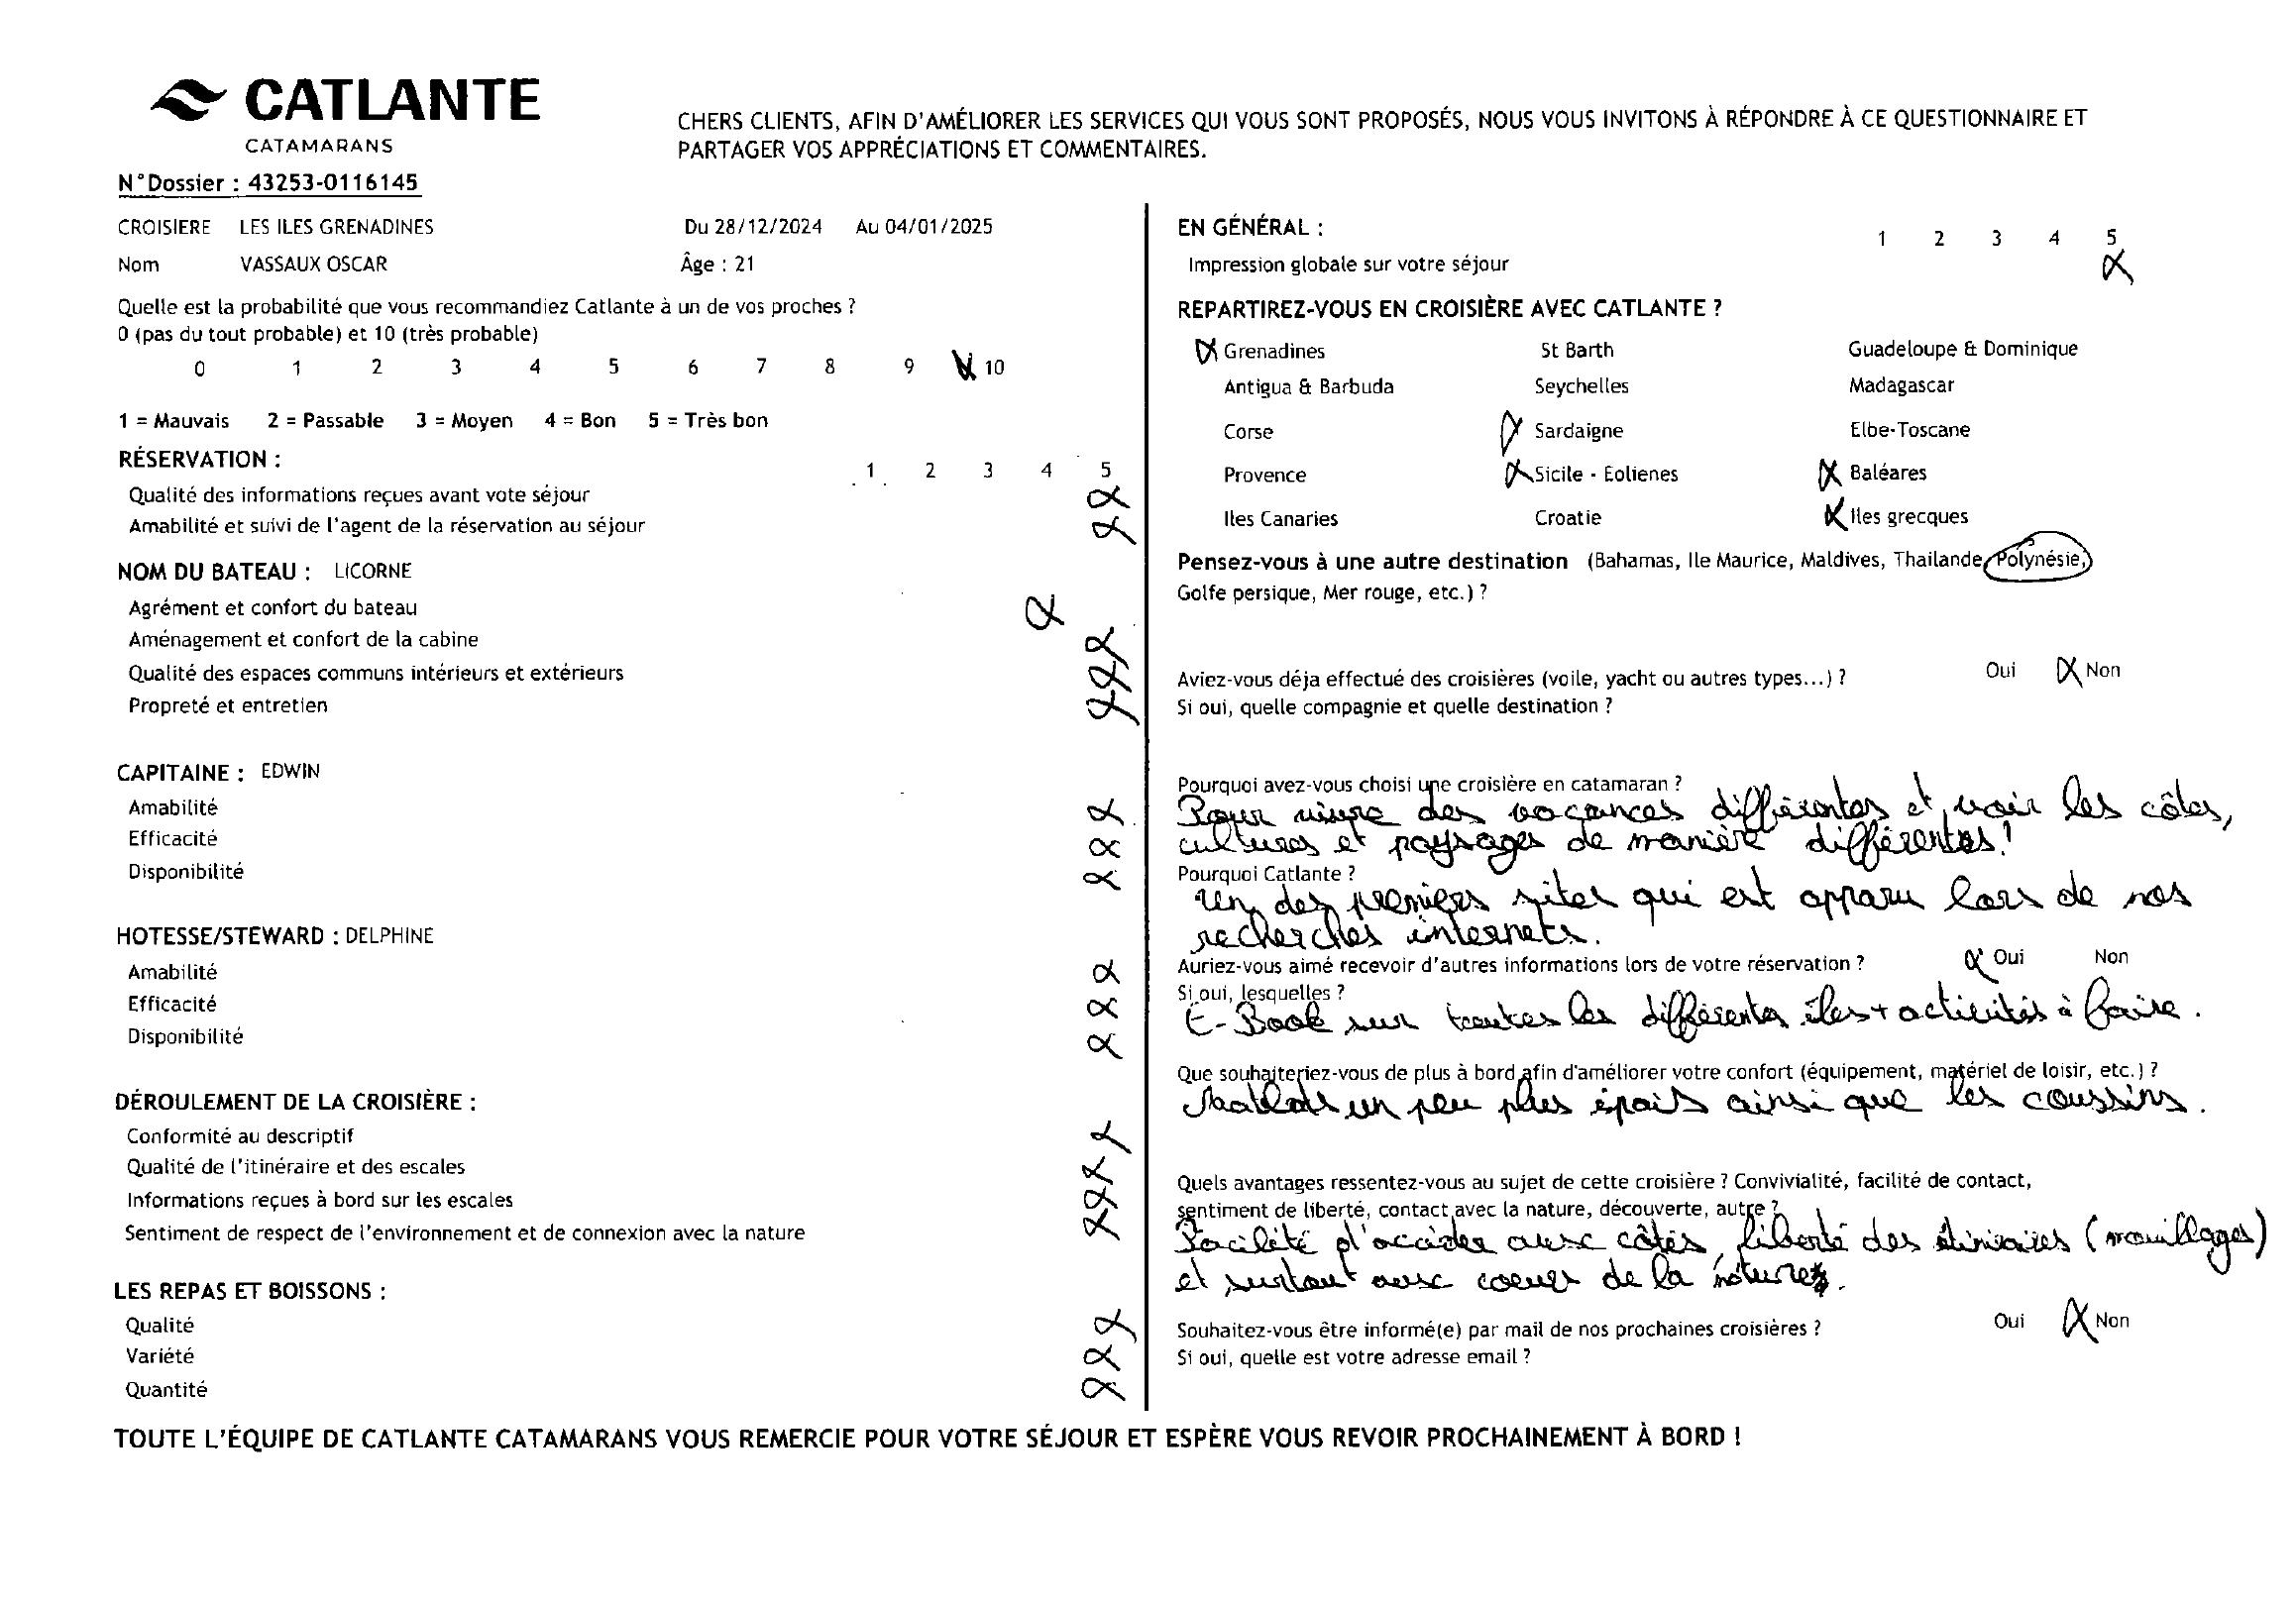 CATLANTE
CATAMARANS
CHERS CLIENTS, AFIN D'AMÉLIORER LES SERVICES QUI VOUS SONT PROPOSÉS, NOUS VOUS INVITONS À RÉPONDRE À CE QUESTIONNAIRE ET
PARTAGER VOS APPRÉCIATIONS ET COMMENTAIRES.
N°Dossier : 43253-0116145
CROISIERE LES ILES GRENADINES Du 28/12/2024 Au 04/01/2025
Nom VASSAUX OSCAR Âge : 21
Quelle est la probabilité que vous recommandiez Catlante à un de vos proches ?
0 (pas du tout probable) et 10 (très probable)
0 1 2 3 4 5 6 7 8 9 X 10
1 = Mauvais 2 = Passable 3 = Moyen 4 = Bon 5 = Très bon
RÉSERVATION :
1 2 3 4 5
Qualité des informations reçues avant vote séjour X
Amabilité et suivi de l'agent de la réservation au séjour X
NOM DU BATEAU : LICORNE
Agrément et confort du bateau X
Aménagement et confort de la cabine X
Qualité des espaces communs intérieurs et extérieurs X
Propreté et entretien X
CAPITAINE : EDWIN
Amabilité X
Efficacité X
Disponibilité X
HOTESSE/STEWARD : DELPHINE
Amabilité X
Efficacité X
Disponibilité X
DÉROULEMENT DE LA CROISIÈRE :
Conformité au descriptif X
Qualité de l'itinéraire et des escales X
Informations reçues à bord sur les escales X
Sentiment de respect de l'environnement et de connexion avec la nature X
LES REPAS ET BOISSONS :
Qualité X
Variété X
Quantité X
EN GÉNÉRAL :
1 2 3 4 5
Impression globale sur votre séjour X
REPARTIREZ-VOUS EN CROISIÈRE AVEC CATLANTE ?
X Grenadines St Barth Guadeloupe & Dominique
Antigua & Barbuda Seychelles Madagascar
Corse X Sardaigne Elbe-Toscane
Provence X Sicile - Eolienes X Baléares
Iles Canaries Croatie X Iles grecques
Pensez-vous à une autre destination (Bahamas, Ile Maurice, Maldives, Thailande, Polynésie,
Golfe persique, Mer rouge, etc.) ?
Aviez-vous déja effectué des croisières (voile, yacht ou autres types...) ? Oui X Non
Si oui, quelle compagnie et quelle destination ?
Pourquoi avez-vous choisi une croisière en catamaran ?
Pour vivre des vacances différentes et voir les côtes,
cultures et paysages de manière différentes!
Pourquoi Catlante ?
Un des premiers sites qui est apparu lors de nos
recherches internets.
Auriez-vous aimé recevoir d'autres informations lors de votre réservation ? X Oui Non
Si oui, lesquelles ?
E-Book sur toutes les différentes îles + activités à faire.
Que souhaiteriez-vous de plus à bord afin d'améliorer votre confort (équipement, matériel de loisir, etc.) ?
Matelats un peu plus épais ainsi que les coussins.
Quels avantages ressentez-vous au sujet de cette croisière ? Convivialité, facilité de contact,
sentiment de liberté, contact avec la nature, découverte, autre ?
Facilité d'accéder aux côtés, liberté des itiniraires (mouillages)
et surtout aux coeurs de la nature.
Souhaitez-vous être informé(e) par mail de nos prochaines croisières ? Oui X Non
Si oui, quelle est votre adresse email ?
TOUTE L'ÉQUIPE DE CATLANTE CATAMARANS VOUS REMERCIE POUR VOTRE SÉJOUR ET ESPÈRE VOUS REVOIR PROCHAINEMENT À BORD !